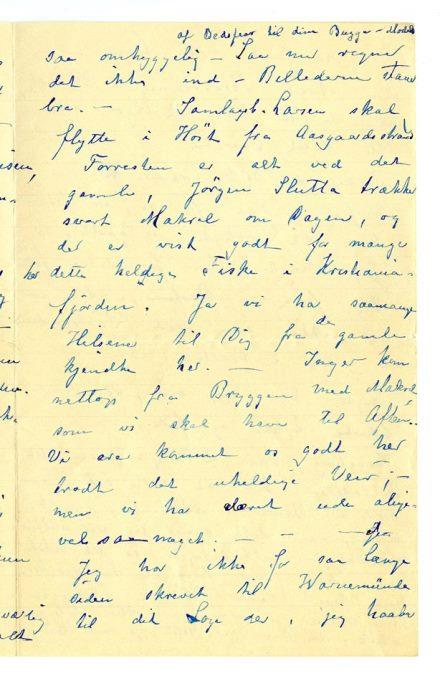 af Dedspar til din Bugge – Modell
saa omhyggelig – Saa nu regner
det ikke ind – Billederne staar
bra. – Samlagsb. Larsen skal
flytte i Høst fra Aasgaardsstrand
Forresten er alt ved det
gamle, Jørgen Slutta trækker
svært Makrel om Dagen, og
der er vist godt for mange
dette heldige Fiske i Kristiania-
fjorden. Ja vi ha saamange
Hilsener til Dig fra de gamle
kjendte her. – Inger kom
nettop fra Bryggen med Makrel
som vi skal have til Aften.
Vi ere kommet os godt her
trods det uheldige Veir; –
men vi ha været ude allige-
vel saa meget. – – –
Jeg har ikke for saa længe
siden skrevet til Warnemünde
til dit Logi der, jeg haaber